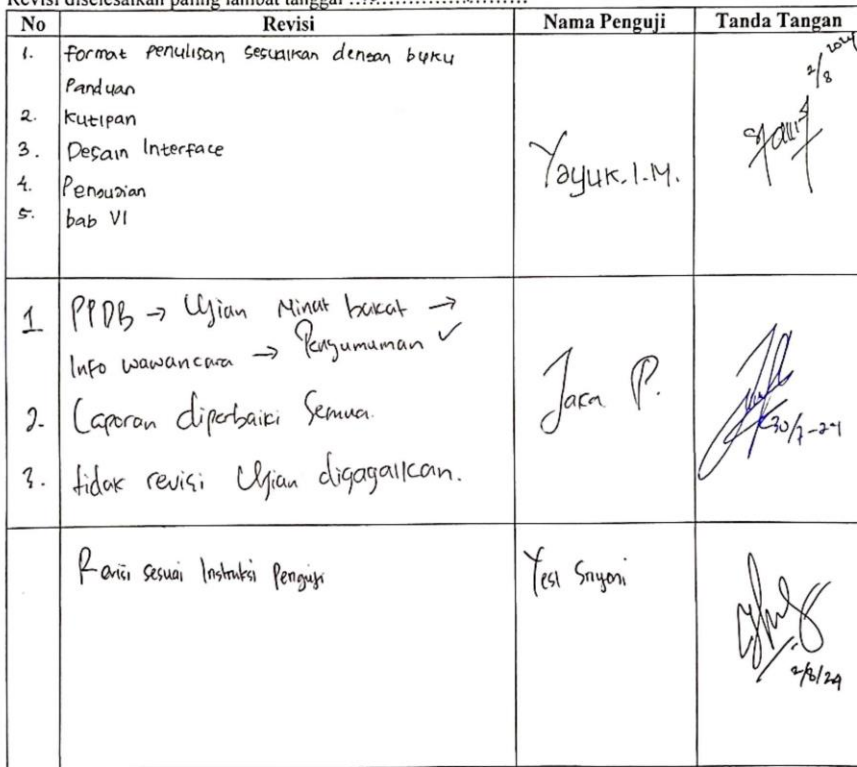 Revisi diselesaikan paling lambat tanggal ..............................
No Revisi Nama Penguji Tanda Tangan
1. format penulisan sesuaikan dengan buku
Panduan
2. Kutipan
3. Desain Interface
4. Pengujian
5. bab VI
Yayuk.I.M.
2/8 2024
1 PPDB → Ujian Minat bakat →
Info wawancara → Pengumuman ✓
2. Laporan diperbaiki Semua.
3. tidak revisi Ujian digagalkan.
Jaka P.
30/7-24
Revisi sesuai Instruksi Penguji
Yesi Sriyeni
2/8/24